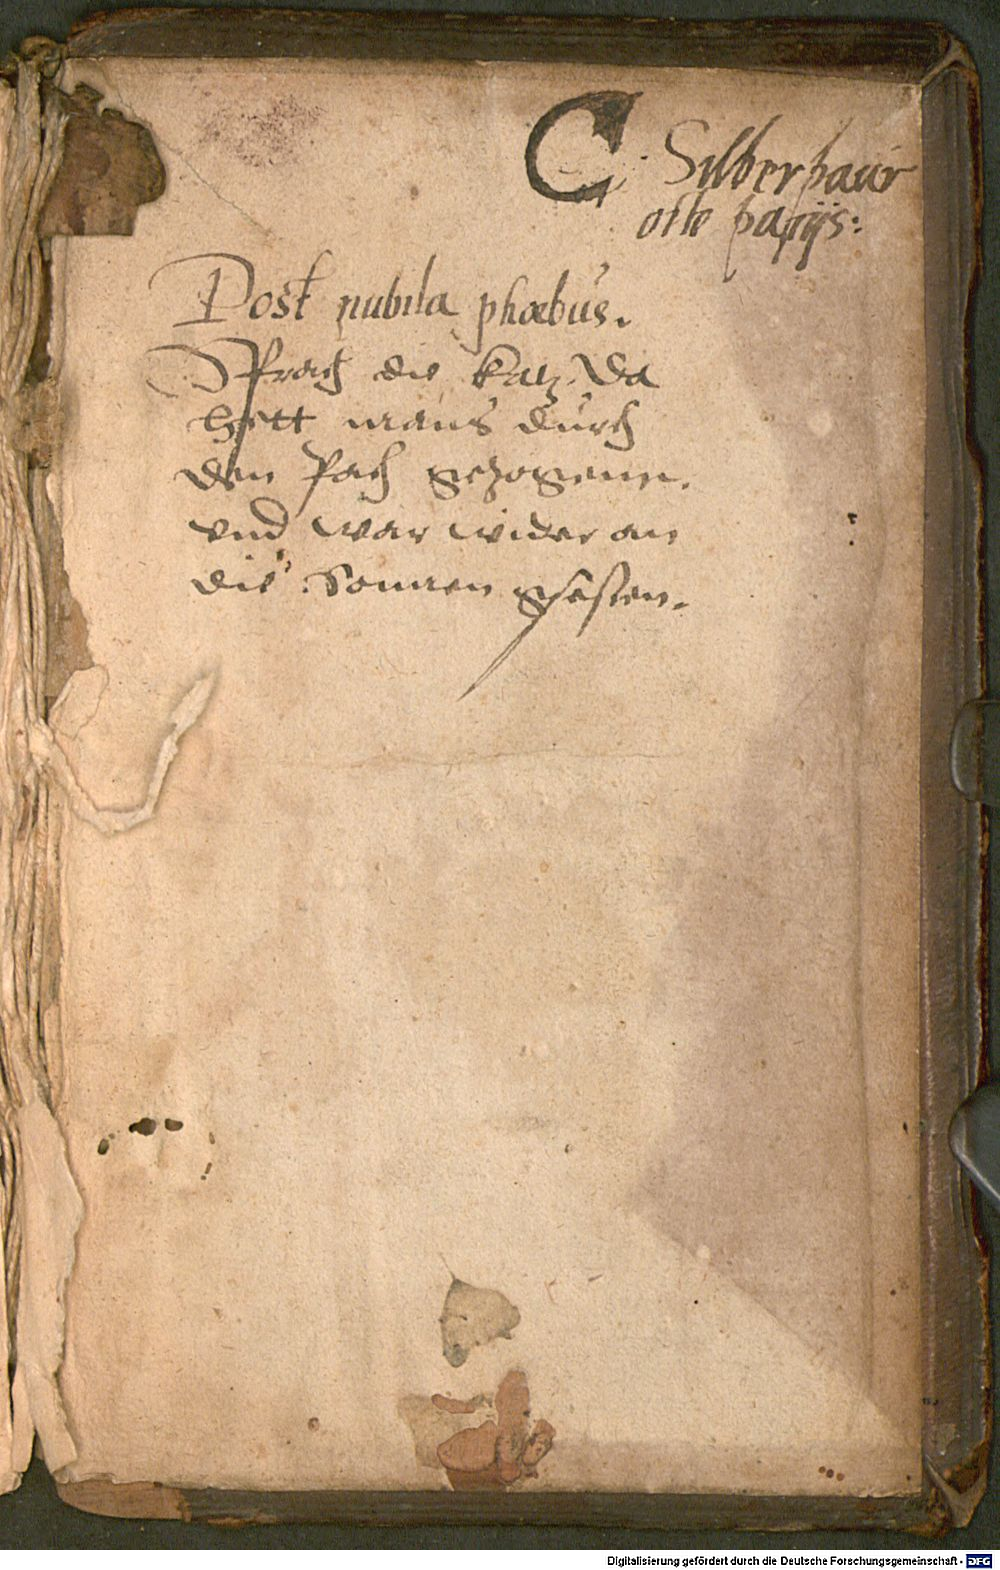 C Silberpaur
oste papijs:
Post nubila phœbus.
Sprach die Katz. Da
hett mans durch
den Pach gezogenn.
vnd war wider an
die Sonnen gsessen.
Digitalisierung gefördert durch die Deutsche Forschungsgemeinschaft - DFG